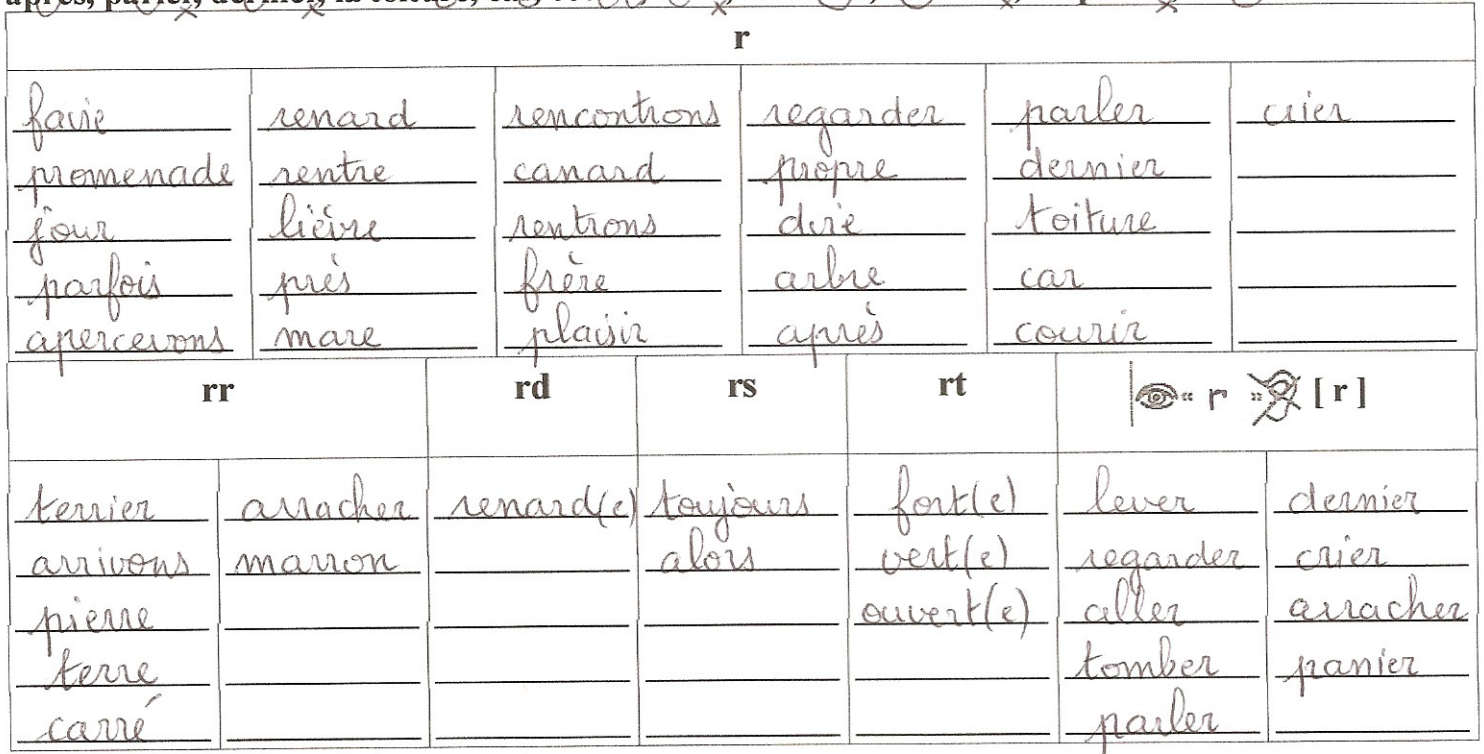 r
faire renard rencontrons regarder parler crier
promenade rentre canard propre dernier
jour lièvre rentrons dire toiture
parfois près frère arbre car
apercevons mare plaisir après courir
rr rd rs rt « r » [ r ]
terrier arracher renard(e) toujours fort(e) lever dernier
arrivons marron alors vert(e) regarder crier
pierre ouvert(e) aller arracher
terre tomber panier
carré parler